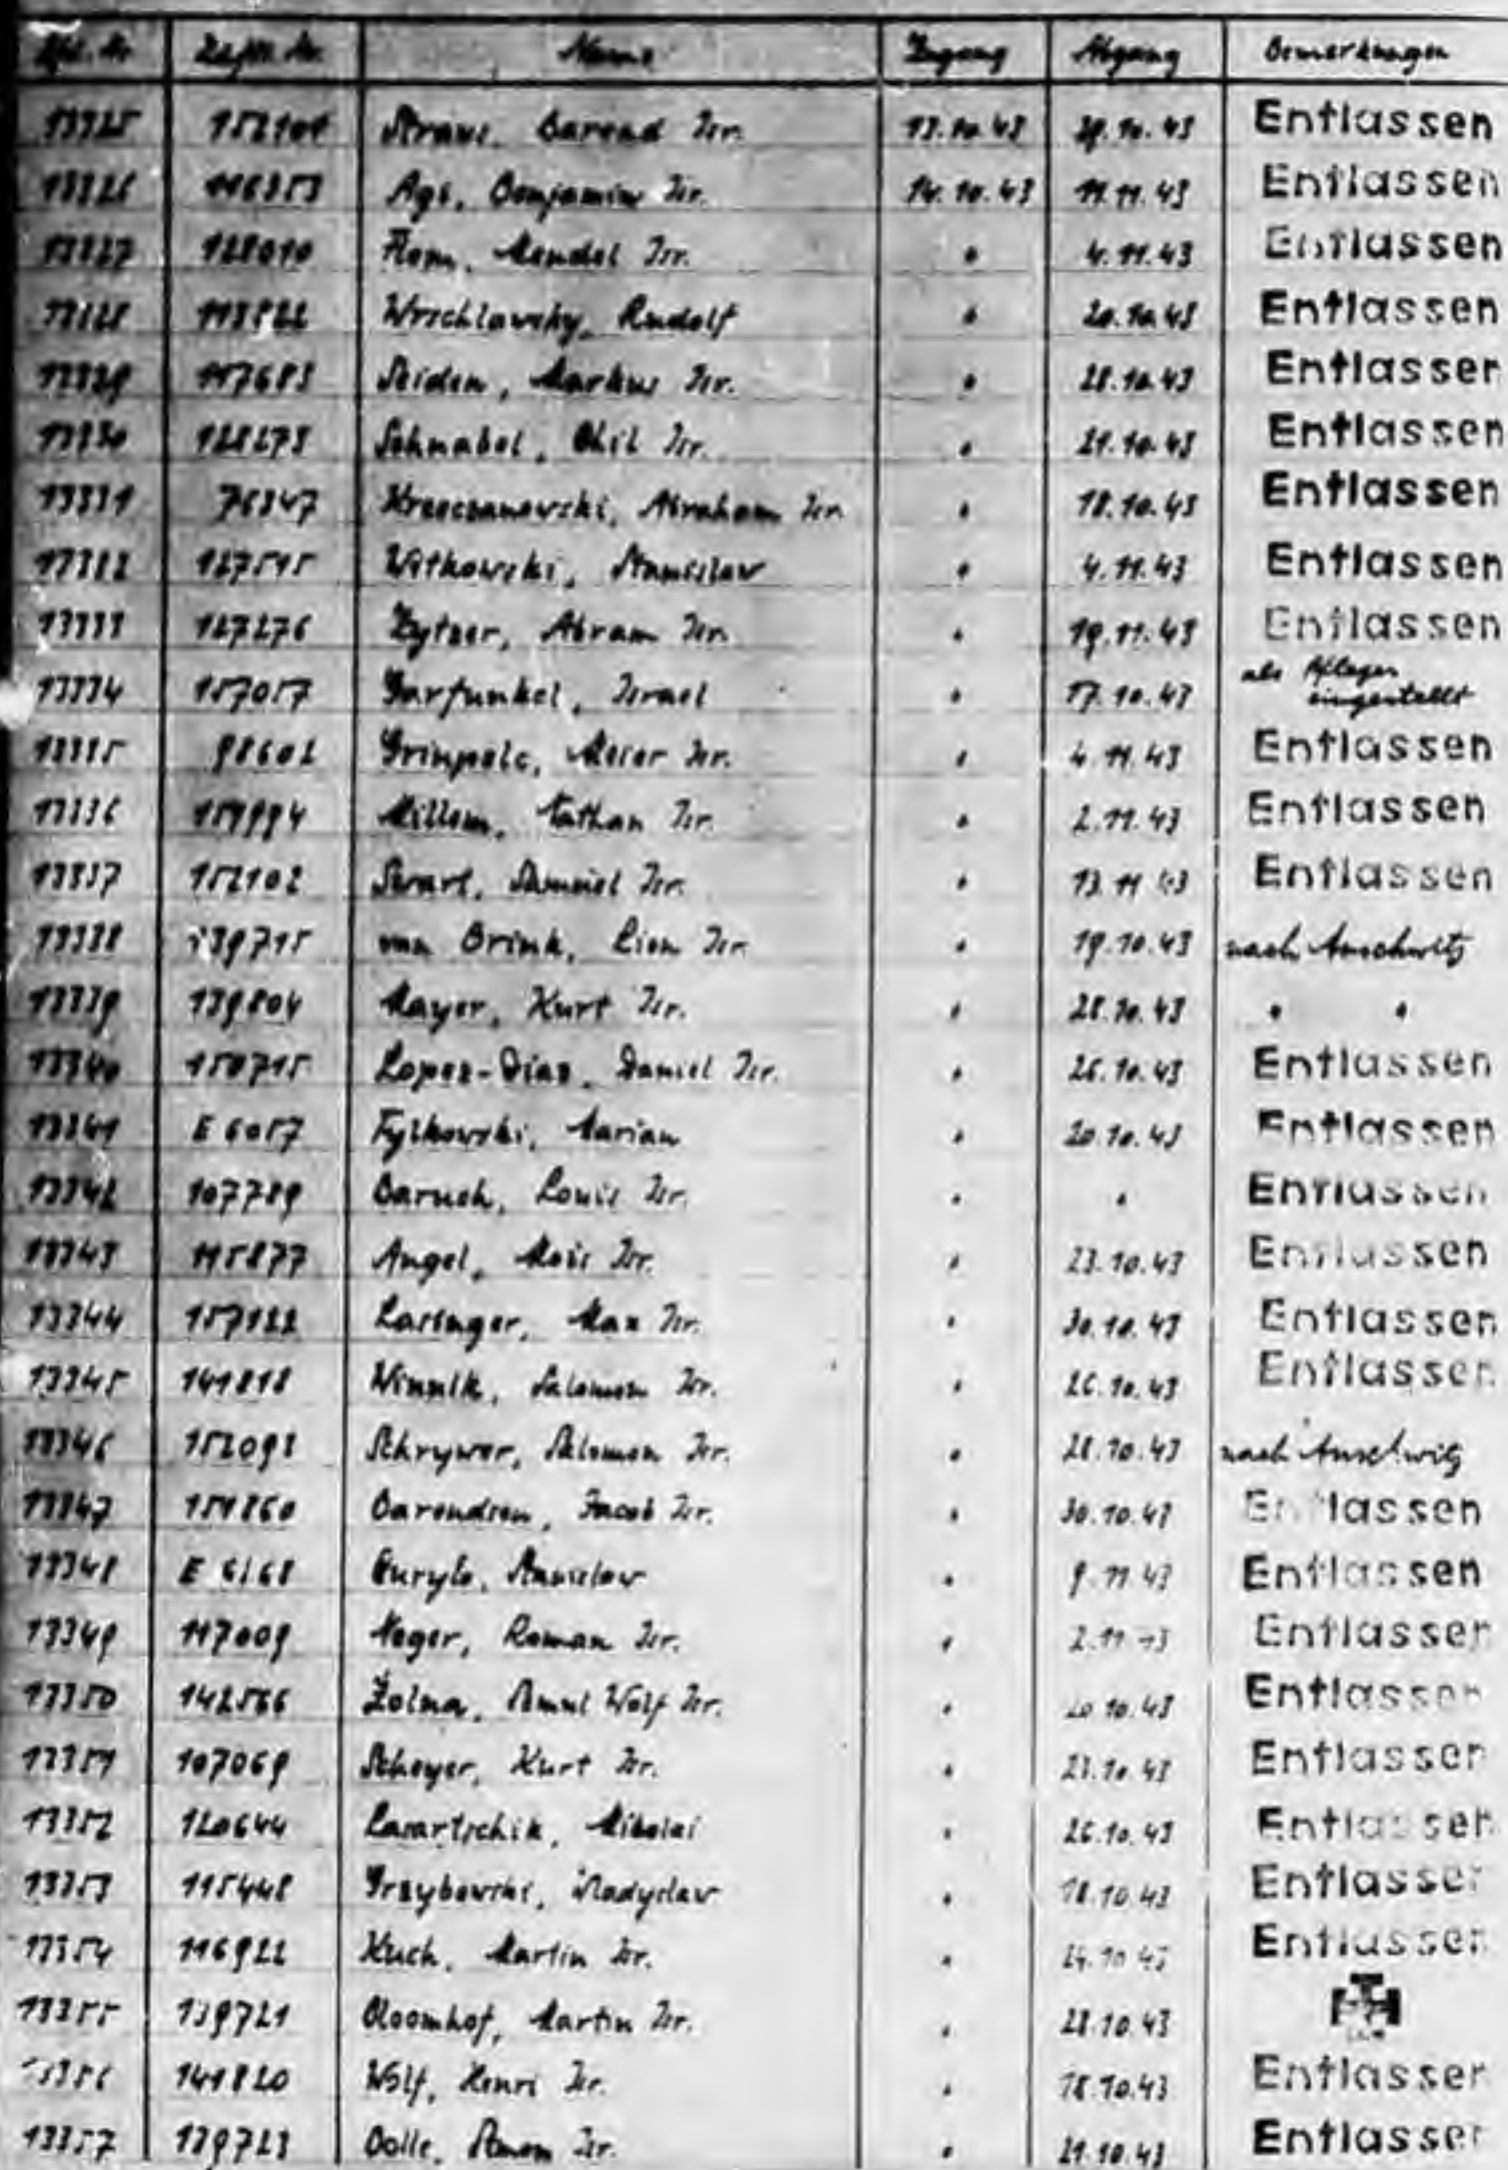 Lfd. Nr. Häftl. Nr. Name Zugang Abgang Bemerkungen
13325 152101 Straus, Barend Isr. 13.10.43 29.10.43 Entlassen
13326 116353 Ags, Benjamin Isr. 14.10.43 11.11.43 Entlassen
13327 128010 Flom, Mendel Isr. " 4.11.43 Entlassen
13328 113822 Wrschlawsky, Rudolf " 20.10.43 Entlassen
13329 117683 Seiden, Markus Isr. " 28.10.43 Entlassen
13330 128273 Schnabel, Chil Isr. " 21.10.43 Entlassen
13331 76347 Abraham Isr. " 18.10.43 Entlassen
13332 127515 Witkowski, Stanislaw " 4.11.43 Entlassen
13333 127276 Zytner, Abram Isr. " 19.11.43 Entlassen
13334 157057 Garfunkel, Israel " 17.10.43 als Pfleger
eingestellt
13335 98602 Grinpelc, Meier Isr. " 4.11.43 Entlassen
13336 151994 Millem, Nathan Isr. " 2.11.43 Entlassen
13337 152102 Swart, Samuel Isr. " 13.11.43 Entlassen
13338 139715 van Brink, Lion Isr. " 19.10.43 nach Auschwitz
13339 139804 Mayer, Kurt Isr. " 28.10.43 " "
13340 150715 Lopes-Dias, Daniel Isr. " 26.10.43 Entlassen
13341 E 6057 Fylkowski, Marian " 20.10.43 Entlassen
13342 107789 Baruch, Louis Isr. " " Entlassen
13343 115877 Angel, Mois Isr. " 23.10.43 Entlassen
13344 157122 Larsinger, Max Isr. " 30.10.43 Entlassen
13345 141818 Winnik, Salomon Isr. " 26.10.43 Entlassen
13346 152093 Schrywer, Salomon Isr. " 28.10.43 nach Auschwitz
13347 151860 Barendsen, Jacob Isr. " 30.10.43 Entlassen
13348 E 6168 Guryle, Stanislaw " 9.11.43 Entlassen
13349 117009 Neger, Roman Isr. " 2.11.43 Entlassen
13350 142566 Zolna, Wolf Isr. " 20.10.43 Entlassen
13351 107069 Scheyer, Kurt Isr. " 23.10.43 Entlassen
13352 120644 Lasartschik, Nikolai " 26.10.43 Entlassen
13353 115448 Grzybowski, Wladyslaw " 18.10.43 Entlassen
13354 116922 Kuch, Martin Isr. " 24.10.43 Entlassen
13355 139721 Bloomhof, Martin Isr. " 28.10.43
13356 141820 Wolf, Henri Isr. " 18.10.43 Entlassen
13357 139723 Bolle, Simon Isr. " 21.10.43 Entlassen